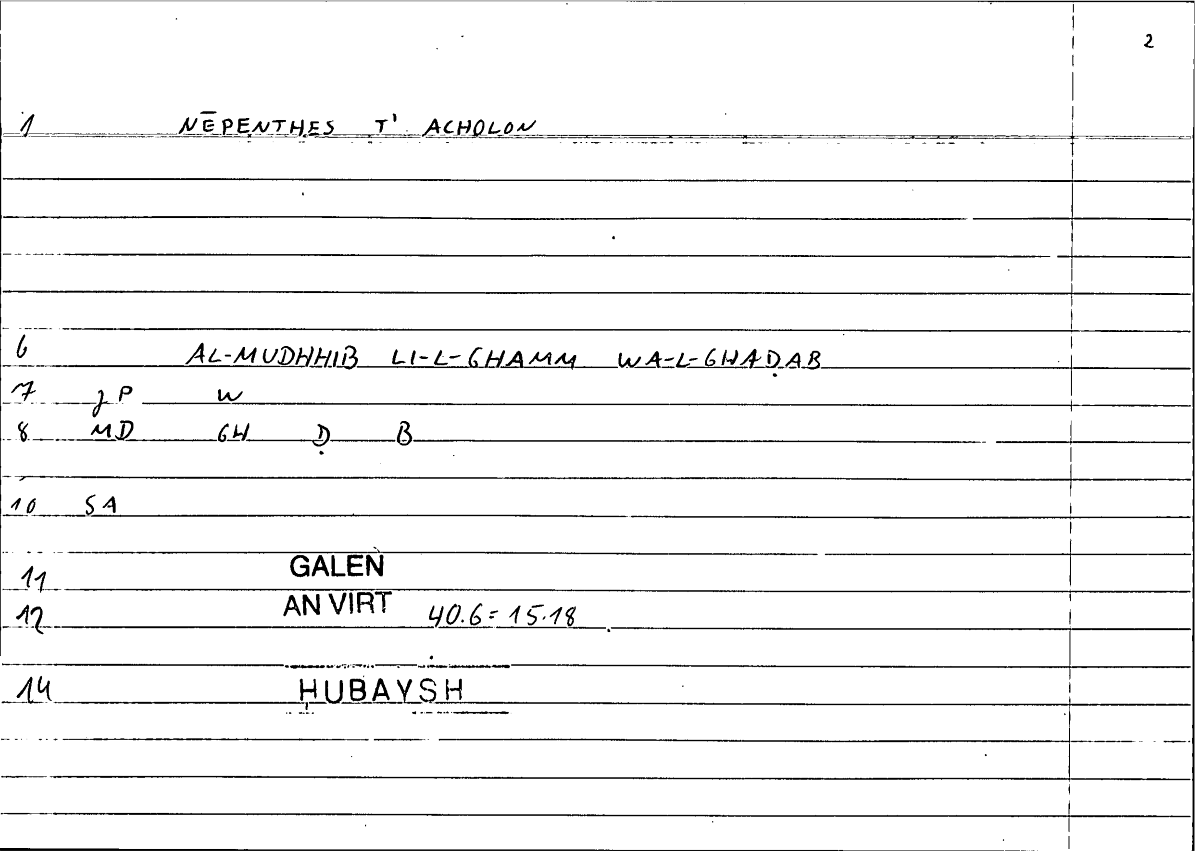 2
1 NĒPENTHES T' ACHOLON
6 AL-MUDHHIB LI-L-GHAMM WA-L-GHAḌAB
7 JP W
8 MD GH Ḍ B
10 SA
11 GALEN
12 AN VIRT 40.6=15.18
14 ḤUBAYSH